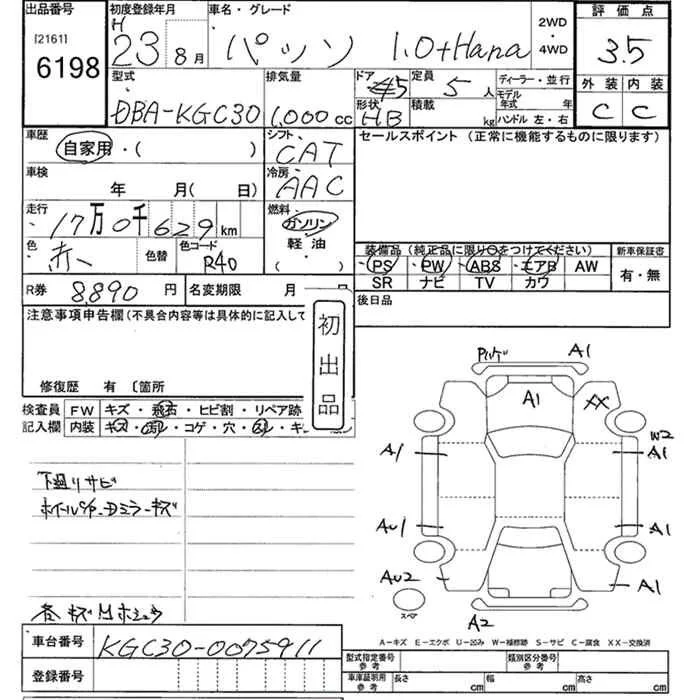 出品番号
[2161]
6198
初度登録年月
H
23 8月
車名・グレード
パッソ 1.0+Hana
2WD
・
4WD
評価点
3.5
外装 内装
C C
型式
DBA-KGC30
排気量
1,000 cc
ドア 5
形状 HB
定員 5 人
積載 kg
ディーラー・並行
モデル年式 年
ハンドル 左・右
車歴
自家用・( )
シフト
CAT
セールスポイント (正常に機能するものに限ります)
車検
年 月( 日)
冷房
AAC
走行
17万0千629km
燃料
ガソリン
軽油
( )
色
赤
色替
色コード
R40
装備品 (純正品に限り○をつけてください)
新車保証書
PS PW ABS エアB AW
SR ナビ TV カワ
有・無
R券 8,890 円
名変期限 月
後日品
注意事項申告欄(不具合内容等は具体的に記入して
初出品
修復歴 有 〔箇所
検査員 FW キズ・飛石・ヒビ割・リペア跡
記入欄 内装 キズ・ ・コゲ・穴・ ・キ
下廻りサビ
キズM
車台番号 KGC30-0075911
登録番号
A1
A1
XX
W2
A1
A1
AU1
A1
AU2
A1
スペア
A2
A-キズ E-エクボ U-凹み W-補修跡 S-サビ C-腐食 XX-交換済
型式指定番号
参考
類別区分番号
参考
車庫証明用
参考
長さ cm 幅 cm 高さ cm